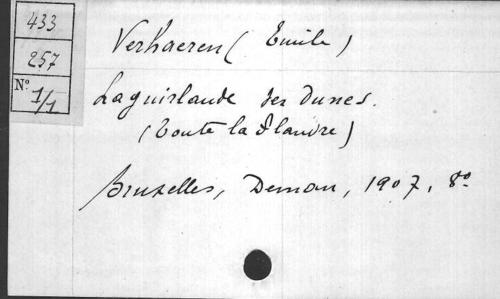 433
257
N° 1/1
Verhaeren (Emile)
La guirlande des Dunes.
(Toute la Flandre)
Bruxelles, Deman, 1907, 8°